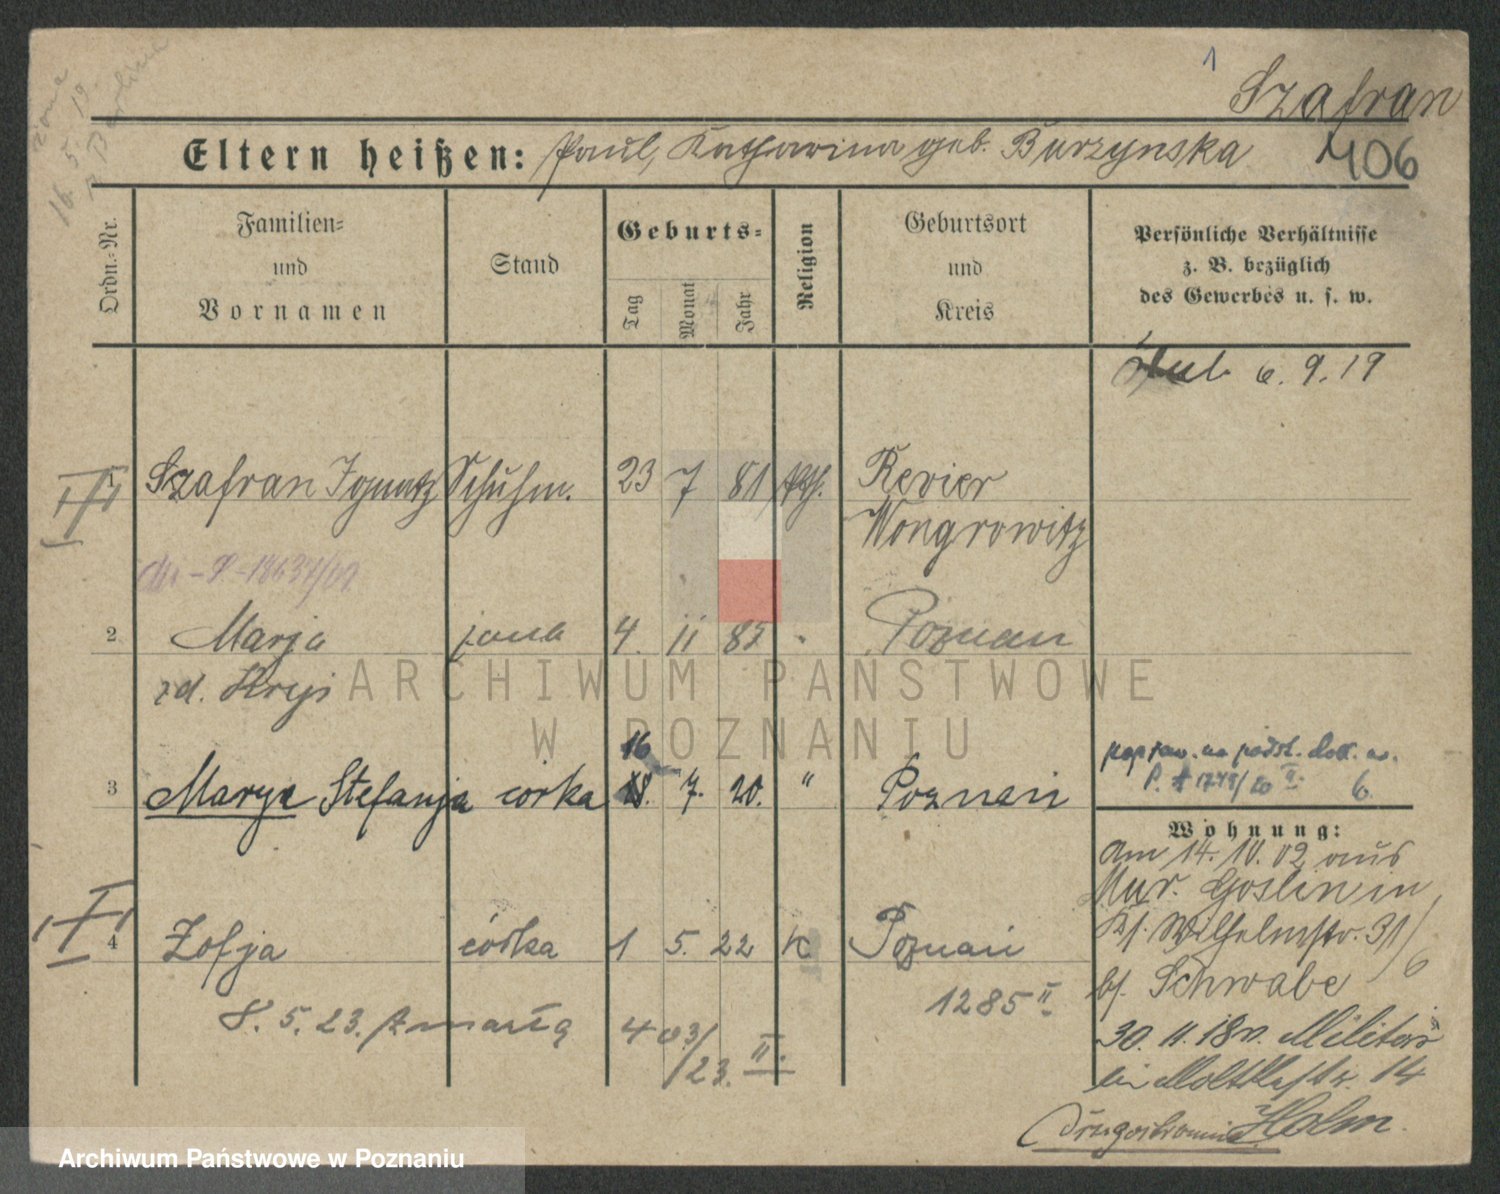 1
Szafran
Eltern heißen: Paul, Katharina geb. Burzynska
406
16. 5. 19
Ordn.-Nr.
Familien-
und
Vornamen
Stand
Geburts-
Tag
Monat
Jahr
Religion
Geburtsort
und
Kreis
Persönliche Verhältnisse
z. B. bezüglich
des Gewerbes u. s. w.
ślub 6. 9. 19
1 Szafran Ignatz Schuhm. 23 7 81 kth. Revier
Wongrowitz
2 Marja żona 4. 11 85 Poznan
zd. Kryś
16
3 Marya Stefanja córka 18. 7. 20. " Poznań
P. A 1748/20 II. 6.
Wohnung:
am 14. 10. 02 aus
Mur. Goslin in
Kl. Wilhelmstr. 31/6
bf. Schwabe
4 Zofja córka 1 5. 22 k Poznań
1285 II
8. 5. 23. zmarła 403/23. II.
30. 11. 18 v. Militär
in Moltkestr. 14
Holm.
ARCHIWUM PAŃSTWOWE
W POZNANIU
Archiwum Państwowe w Poznaniu